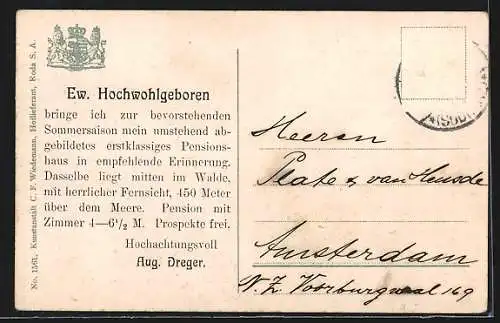 Ew. Hochwohlgeboren
bringe ich zur bevorstehenden
Sommersaison mein umstehend ab-
gebildetes erstklassiges Pensions-
haus in empfehlende Erinnerung.
Dasselbe liegt mitten im Walde,
mit herrlicher Fernsicht, 450 Meter
über dem Meere. Pension mit
Zimmer 4—6½ M. Prospekte frei.
Hochachtungsvoll
Aug. Dreger.
No. 1561, Kunstanstalt C. F. Wiedemann, Hoflieferant, Roda S. A.
Heeren
Plate & van Heusde
Amsterdam
N.Z. Voorburgwal 169